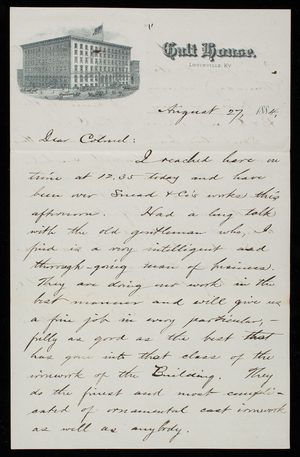 Galt House.
Louisville, KY.
August 27, 1884,
Dear Colonel:
I reached here in
time at 12.35 today and have
been over Snead & Co's works this
afternoon. Had a long talk
with the old gentleman who, I
find is a very intelligent and
thorough-going man of business.
They are doing our work in the
best manner and will give us
a fine job in every particular, –
fully as good as the best that
has gone into that class of the
ironwork of the Building. They
do the finest and most compli-
cated of ornamental cast ironwork
as well as anybody.